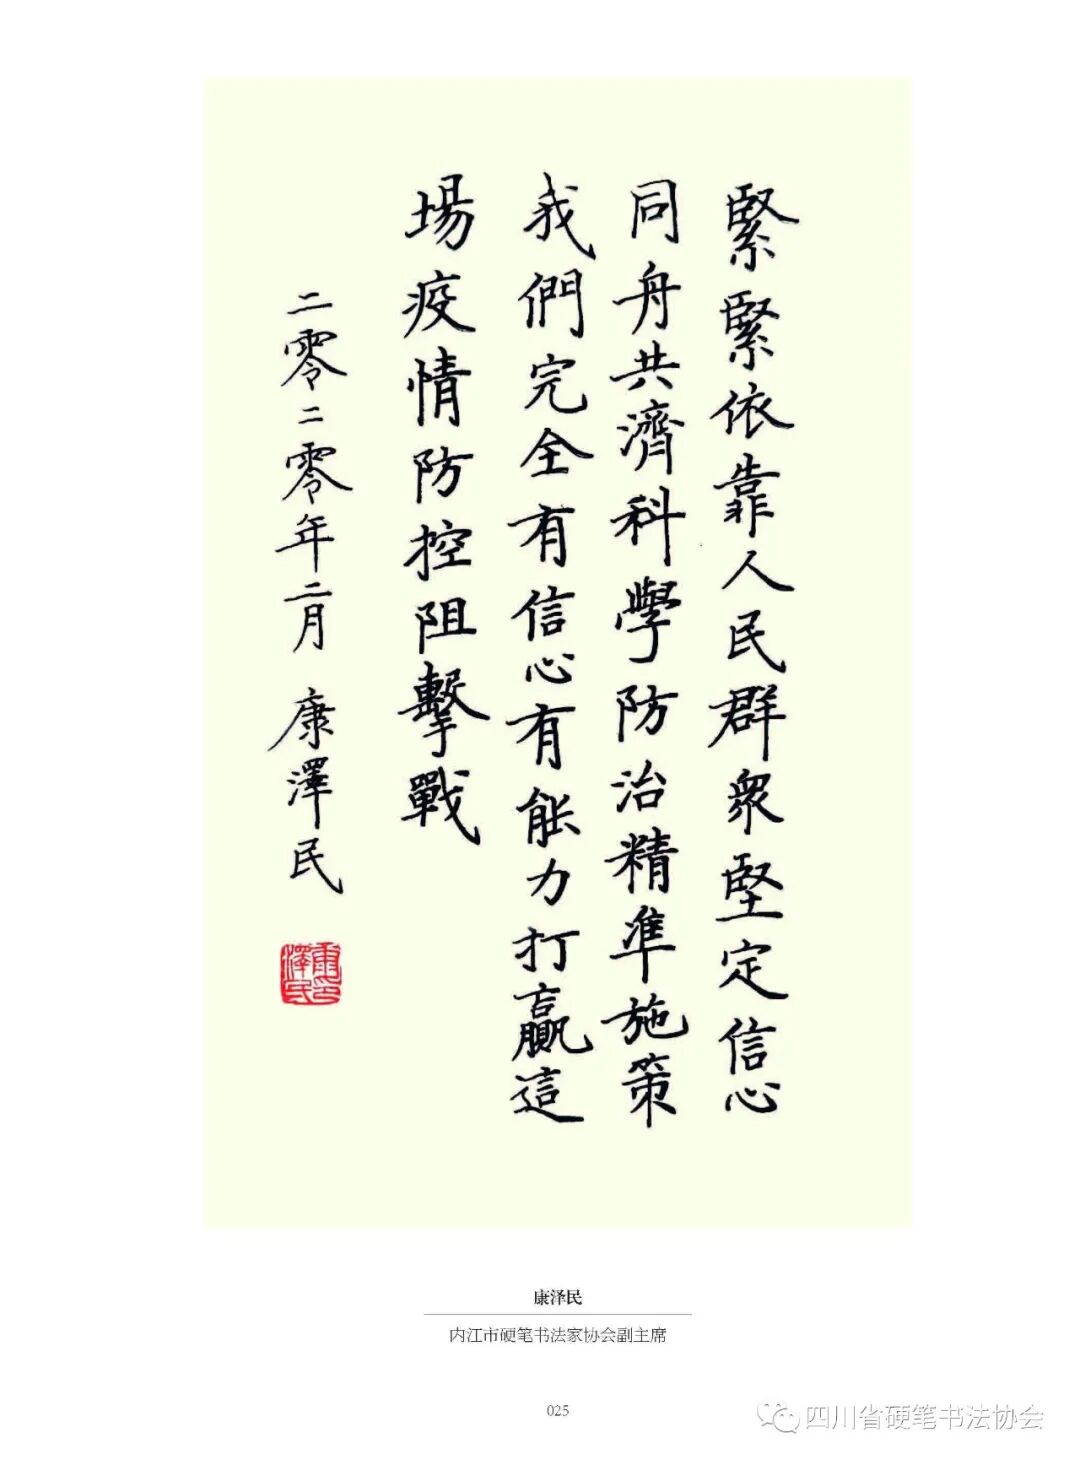 緊緊依靠人民群衆堅定信心
同舟共濟科學防治精準施策
我們完全有信心有能力打贏這
場疫情防控阻擊戰
二零二零年二月 康澤民
康印澤民
康泽民
内江市硬笔书法家协会副主席
025
四川省硬笔书法协会